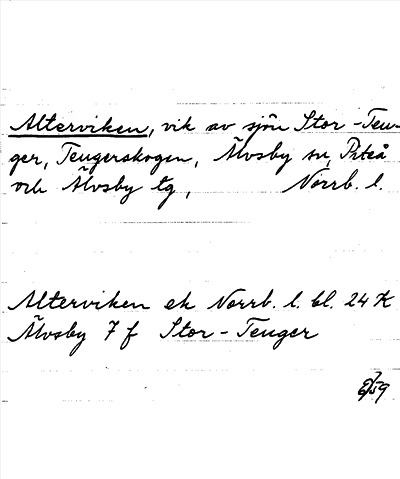 Alterviken, vik av sjön Stor-Teu-
ger, Teugerskogen, Älvsby sn, Piteå
och Älvsby tg, Norrb. l.
Alterviken ek Norrb. l. bl. 24 K
Älvsby 7 f Stor-Teuger